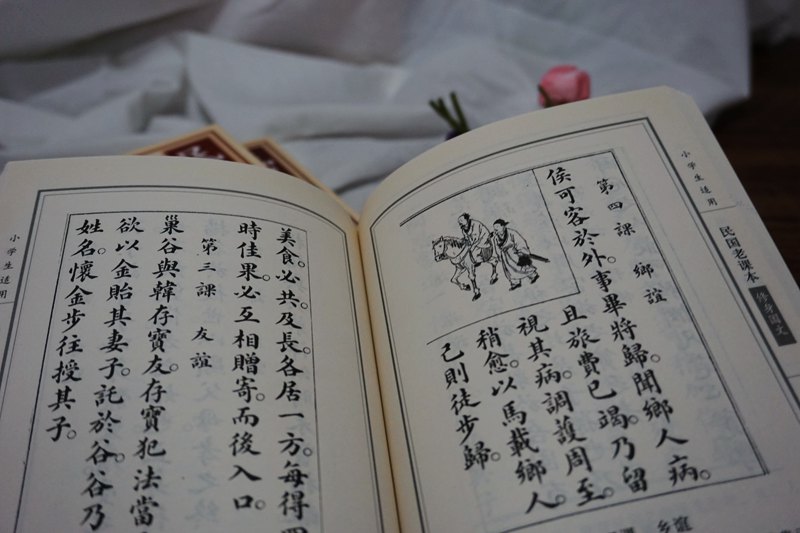 小学生适用
美食必共。及長。各居一方。每得四
時佳果。必互相贈寄。而後入口。
第三課 友誼
巢谷與韓存寶友。存寶犯法當
欲以金貽其妻子。託於谷。谷乃
姓名。懷金步往。授其子。
第四課 鄉誼
侯可客於外。事畢將歸。聞鄉人病。
且旅費已竭。乃留
視其病。調護周至。
稍愈。以馬載鄉人。
己則徒步歸。
小学生适用
民国老课本
修身国文
乡谊